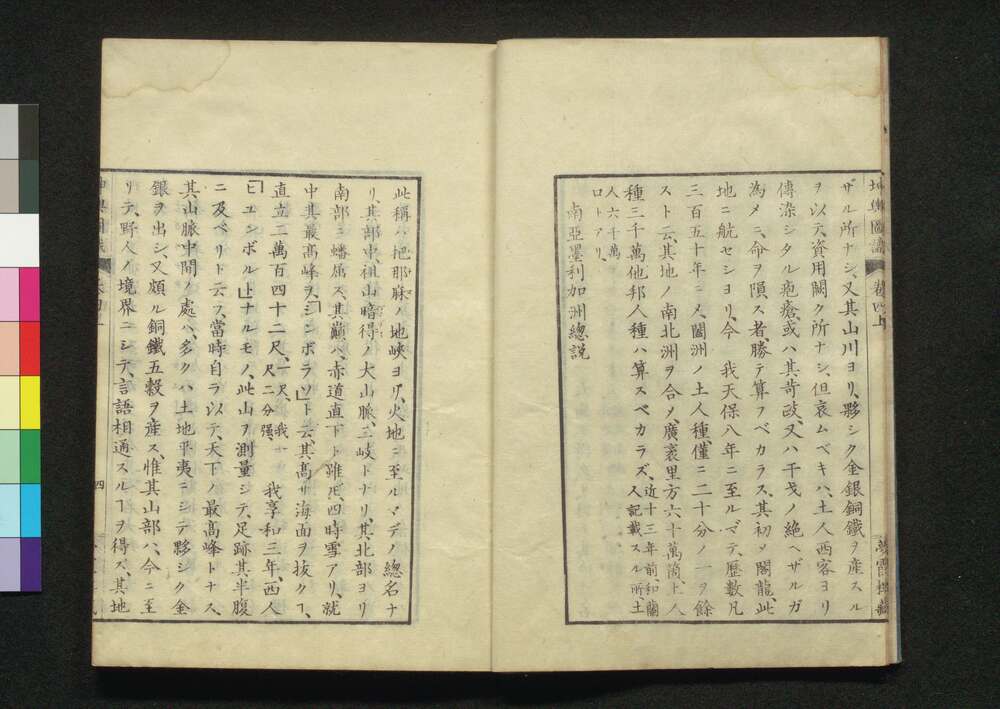 坤輿圖識
卷四上
夢霞樓藏
ザル所ナシ、又其山川ヨリ、夥シク金銀銅鐵ヲ産スル
ヲ以テ、資用闕ク所ナシ、但哀ムベキハ、土人西客ヨリ
傳染シタル疱瘡、或ハ其苛政、又ハ干戈ノ絶ヘザルガ
為メニ、命ヲ隕ス者、勝テ算フベカラス、其初メ閣龍、此
地ニ航セシヨリ、今 我天保八年ニ至ルマデ、歴數凡
三百五十年ニメ、闔洲ノ土人種、僅ニ二十分ノ一ヲ餘
スト云、其地ノ南北洲ヲ合メ、廣袤里方六十萬箇、土人
種三千萬他邦人種ハ算スベカラズ、近十三年前、和蘭
人記載スル所、土
人六千萬
口トアリ、
南亞墨利加洲總説
此稱ハ、把那麻ノ地峽ヨリ、火地ニ至ルマデノ總名ナ
リ、其部中、祖山暗得ノ大山脈、三岐トナリ、其北部ヨリ
南部ニ蟠居ス、其巓ハ、赤道直下ト雖ㇳモ、四時雪アリ、就
中其最高峰ヲ、「シンボラソ」ト云、其高サ海面ヲ抜クヿ、
直立二萬百四十二尺、一尺、我一
尺二分強、 我享和三年、西人
「ヒュンボルト」ナルモノ、此山ヲ測量シテ、足跡其半腹
ニ及ベリト云フ、當時自ラ以テ、天下ノ最高峰トナス、
其山脈中間ノ處ハ、多クハ土地平夷ニシテ夥シク金
銀ヲ出シ、又頗ル銅鐵五穀ヲ産ス、惟其山部ハ、今ニ至
リテ、野人ノ境界ニシテ、言語相通スルヿヲ得ズ、其地
四